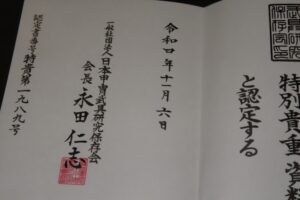 特別貴重資料
と認定する
令和四年十一月六日
一般社団法人日本甲冑武具研究保存会
会長 永田仁志
認定書番号 特貴第一九八九号